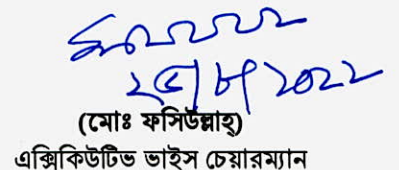 ২৫/৮/২০২২
(মোঃ ফসিউল্লাহ্)
এক্সিকিউটিভ ভাইস চেয়ারম্যান